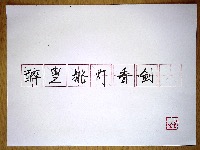 醉里挑灯看剑